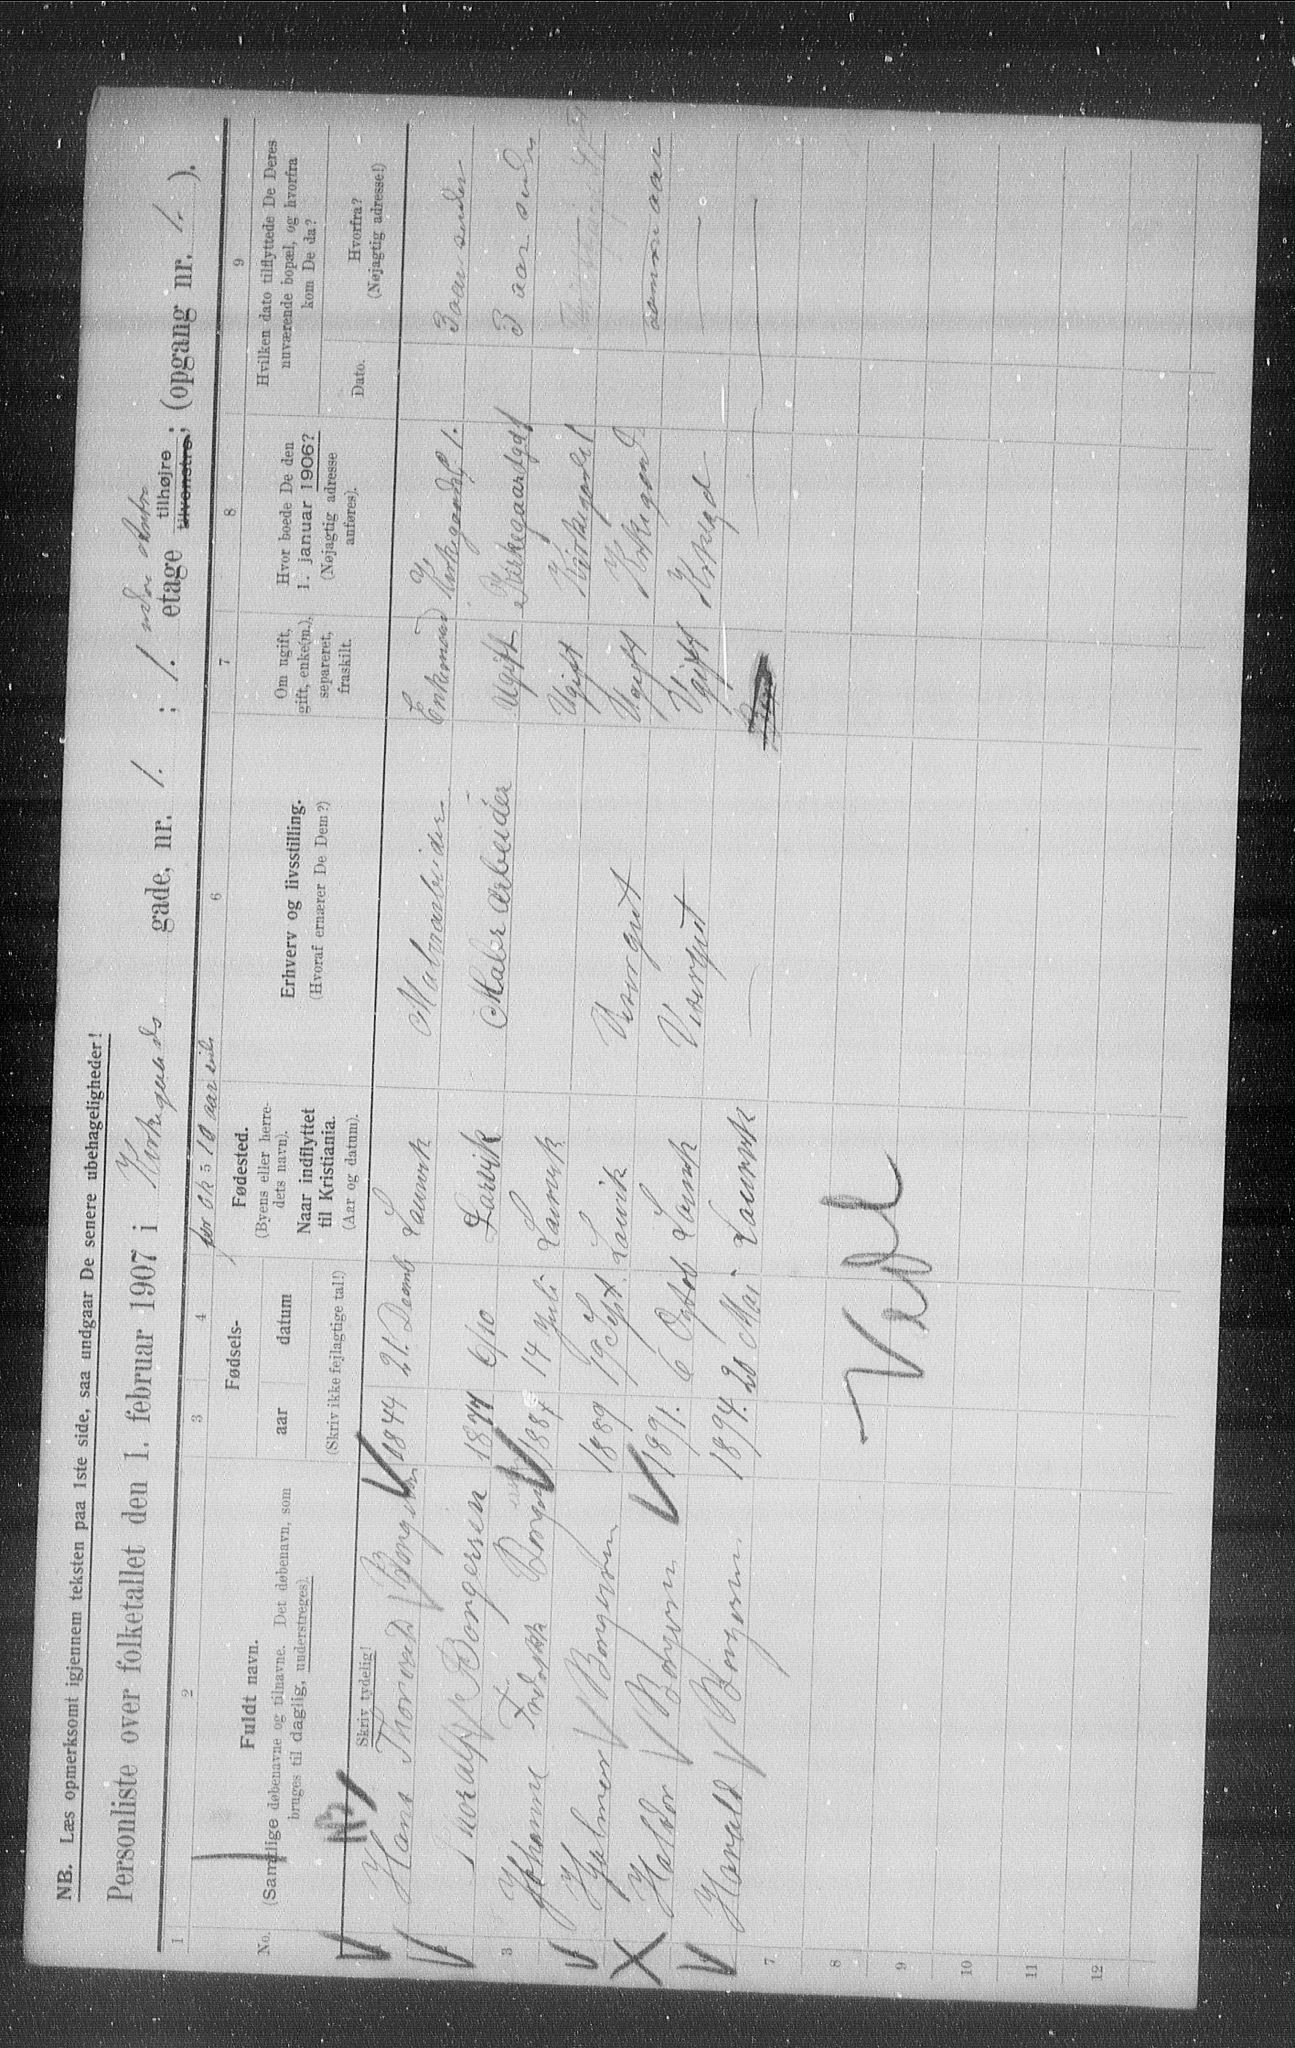 NB. Læs opmerksomt igjennem teksten paa 1ste side, saa undgaar De senere ubehageligheder!
Personliste over folketallet den 1. februar 1907 i Kirkegaards gade, nr. 1. ; 1. etage tilhøjre tilvenstre; (opgang nr. 1. ).
1 2 3 4 5 6 7 8 9
No.
Fuldt navn.
(Samtlige døbenavne og tilnavne. Det døbenavn, som
bruges til daglig, understreges).
Skriv tydelig!
Fødsels-
aar datum
(Skriv ikke fejlagtige tal!)
10 aar
Fødested.
(Byens eller herre-
dets navn).
Naar indflyttet
til Kristiania.
(Aar og datum).
Erhverv og livsstilling.
(Hvoraf ernærer De Dem?)
Om ugift,
gift, enke(m.),
separeret,
fraskilt.
Hvor boede De den
1. januar 1906?
(Nøjagtig adresse
anføres).
Hvilken dato tilflyttede De Deres
nuværende bopæl, og hvorfra
kom De da?
Dato.
Hvorfra?
(Nøjagtig adresse!)
Hans Thorvald Borgersen 1844 21. Decemb Laurvik Malerarbeider Enkemand Kirkegaardsg 1. 3 aar siden
Thoralf Borgersen 1874 6/10 Larvik Maler arbeider Ugift Kirkegaardgd 1 3 aar siden
3 Johanne Fredrikke Borgersen 1887 14 Juli Laurvik Ugift
Hjalmer Borgersen 1889 19 Sept. Laurvik Visergut Ugift samme aar
Haldor Borgersen 1891. 6 Octob Laurvik Visergut Ugift
Harald Borgersen 1894. 20 Mai Laurvik
7
8
9
10
11
12